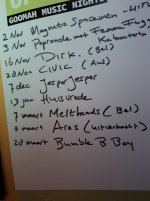 GOOMAH MUSIC NIGHT
2 Nov Magnetic Spacemen -
3 Nov Pepronde met Femme Fugg
Kabouter
16 Nov Dirk. (Bel)
28 Nov CIVIC (Aus)
7 dec Jesper Jesper
13 jan Huisvrede
7 maart Meltheads (Bel)
8 maart Ares (uitverkocht)
28 maart Bumble B Boy